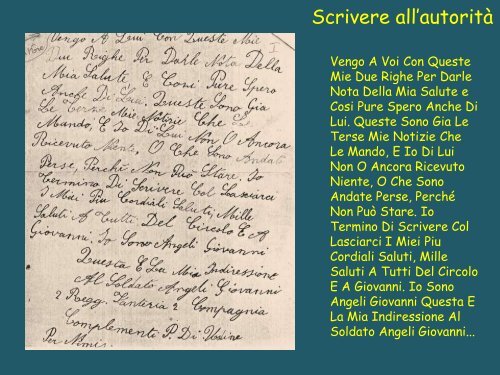 Scrivere all'autorità
Vengo A Lui Con Queste Mie
Due Righe Per Darle Nota Della
Mia Salute E Cosi Pure Spero
Anche Di Lui. Queste Sono Gia
Le Terze Mie Notizie Che Le
Mando, E Io Di Lui Non O Ancora
Ricevuto Niente, O Che Sono Andate
Perse, Perché Non Può Stare. Io
Termino Di Scrivere Col Lasciarci
I Miei Piu Cordiali Saluti, Mille
Saluti A Tutti Del Circolo E A
Giovanni. Io Sono Angeli Giovanni
Questa E La Mia Indiressione
Al Soldato Angeli Giovanni
2 Regg. Fanteria 2 Compagnia
Complementi P. Di Udine
Per Nimis.
Vengo A Voi Con Queste
Mie Due Righe Per Darle
Nota Della Mia Salute e
Cosi Pure Spero Anche Di
Lui. Queste Sono Gia Le
Terse Mie Notizie Che
Le Mando, E Io Di Lui
Non O Ancora Ricevuto
Niente, O Che Sono
Andate Perse, Perché
Non Può Stare. Io
Termino Di Scrivere Col
Lasciarci I Miei Piu
Cordiali Saluti, Mille
Saluti A Tutti Del Circolo
E A Giovanni. Io Sono
Angeli Giovanni Questa E
La Mia Indiressione Al
Soldato Angeli Giovanni...